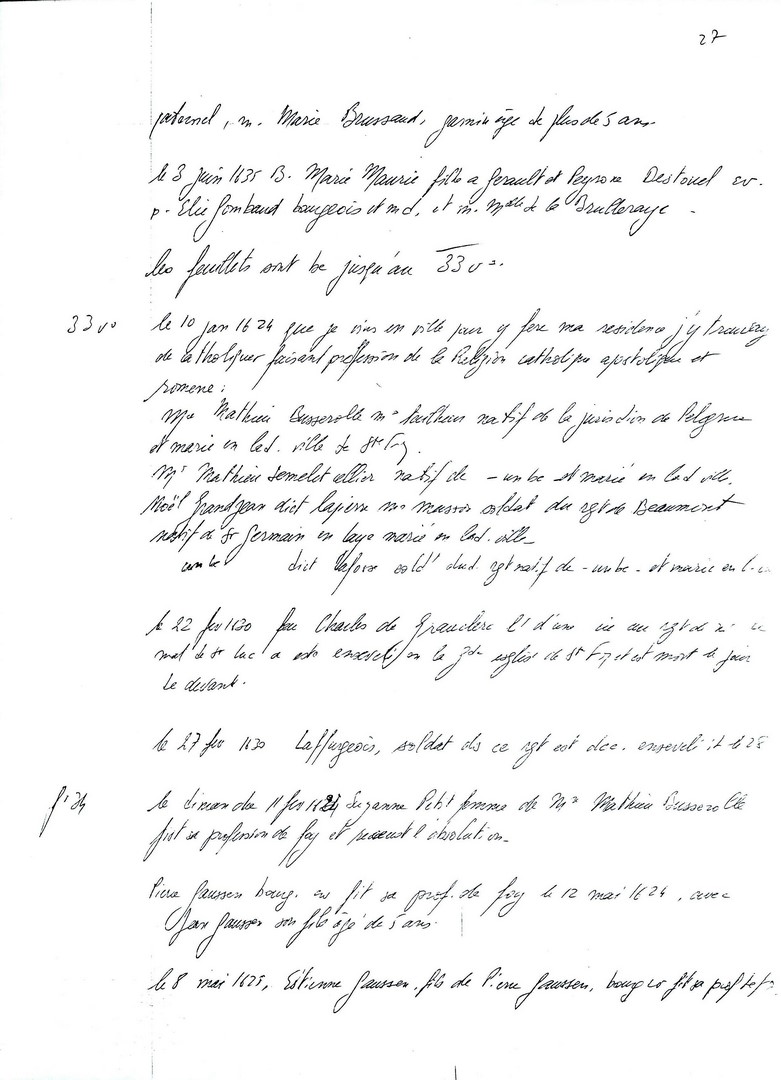 27
paternel, m. Marie Brussaud, parrain âgé de plus de 5 ans.
le 8 juin 1635 B. Marie Maurie fille a Gerault et Peyrone Destouel ev.
p. Elie Gombaud bourgeois et md, et m. Melle de la Brulleraye.
les feuillets sont be jusqu'au 33 v°.
33 v° le 10 jan 1624 que je vins en ville pour y fere ma residence j'y trouvay
de catholiques faisant profession de la Religion catholique apostolique et
romene :
Me Mathieu Busserolle me natif de la jurisdiction de Pelegrue
et marie en lad. ville de Ste Foy.
Mr Mathieu Semelet sellier natif de - un be - et marié en lad ville.
Noël Grandjean dict lapierre me masson soldat du rgt de Beaumont
natif de St Germain en laye marié en lad. ville
un be dict laforse sold' dud. rgt natif de - un be - et marie en l.
le 22 fev 1630 feu Charles de l' d'une cie au rgt de
mal de St Luc a este enseveli en la eglise de Ste Foy et est mort le jour
le devant.
le 27 fev 1630 Laffurgeois, soldat ds ce rgt est dec. enseveli le 28
f° 34 le dimanche 11 fev 1624 Suzanne Petit femme de Me Mathieu Busserolle
fist sa profession de foy et receust l'absolution.
Pierre Gaussen bourg. en fit sa prof. de foy le 12 mai 1624, avec
Jean Gaussen son fils âgé de 5 ans.
le 8 mai 1625, Estienne Gaussen, fils de Pierre Gaussen, bourg fit sa prof de f.